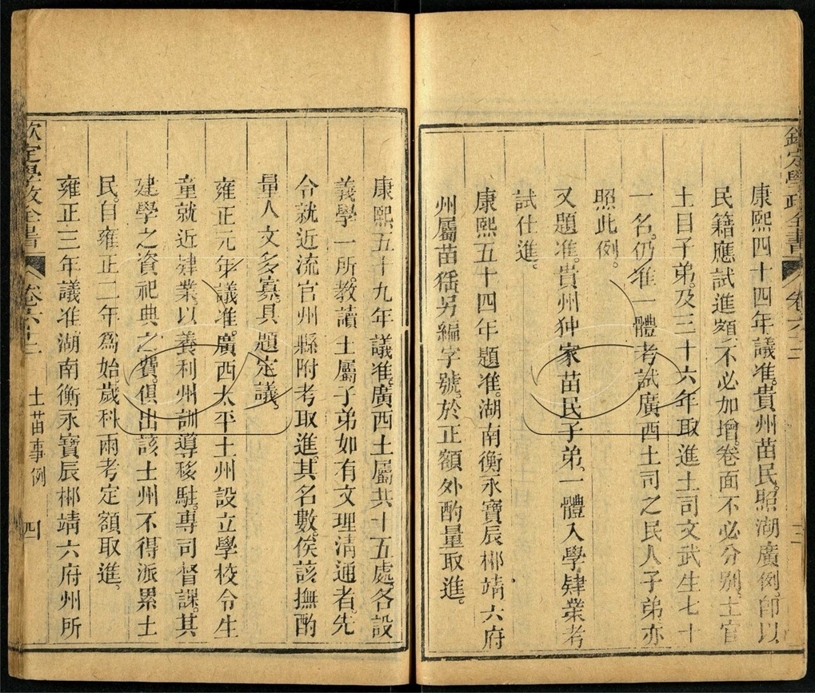 欽定學政全書 卷六十二
康熙四十四年議准。貴州苗民。照湖廣例。即以
民籍應試進額。不必加增。卷面不必分別。土官
土目子弟。及三十六年取進土司文武生七十
一名。仍准一體考試。廣西土司之民人子弟。亦
照此例。
又題准。貴州狆家苗民子弟。一體入學肄業考
試仕進。
康熙五十四年題准。湖南衡永寶辰郴靖六府
州屬苗猺。另編字號。於正額外酌量取進。
康熙五十九年議准。廣西土屬共十五處。各設
義學一所。教讀土屬子弟。如有文理清通者。先
令就近流官州縣附考取進。其名數。俟該撫酌
量人文多寡。具題定議。
雍正元年議准。廣西太平土州設立學校。令生
童就近肄業。以養利州訓導移駐。專司督課。其
建學之資。祀典之費。俱出該土州。不得派累土
民。自雍正二年為始。歲科兩考定額取進。
雍正三年議准。湖南衡永寶辰郴靖六府州所
欽定學政全書 卷六十二 土苗事例 四